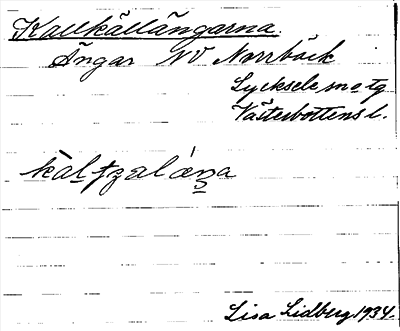 Kallkällängarna.
Ängar NV Norrbäck
Lycksele sn o tg
Västerbottens l.
Lisa Lidberg 1934.